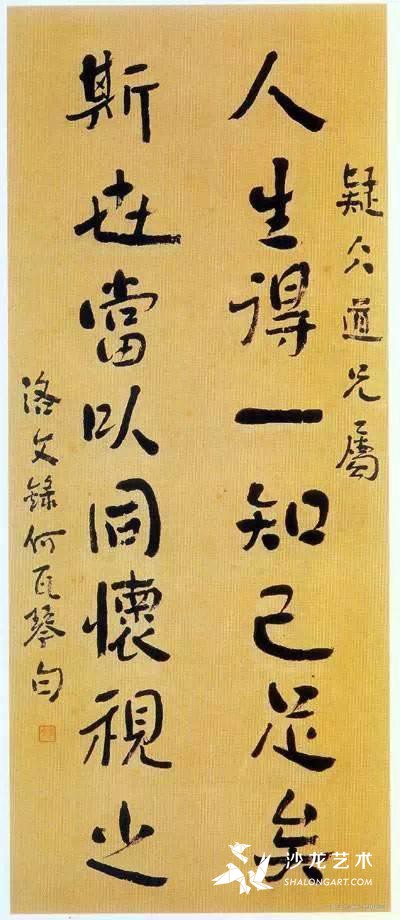 疑仌道兄屬
人生得一知己足矣
斯世當以同懷視之
洛文錄何瓦琴句
沙龙艺术
SHALONGART.COM